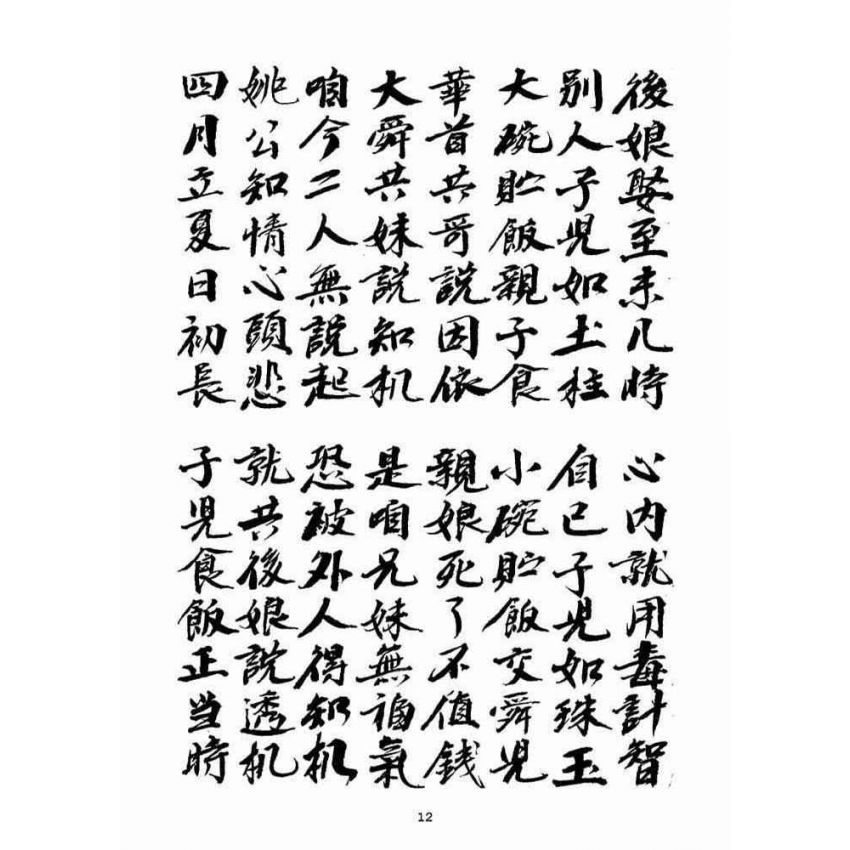 後娘娶至未几時 心内就用毒計智
别人子児如土柱 自己子児如珠玉
大碗貯飯親子食 小碗貯飯交舜児
華首共哥説因依 親娘死了不值銭
大舜共妹説知机 是咱兄妹無福氣
咱今二人無説起 恐被外人得知机
姚公知情心頭悲 就共後娘説透机
四月立夏日初長 子児食飯正当時
12